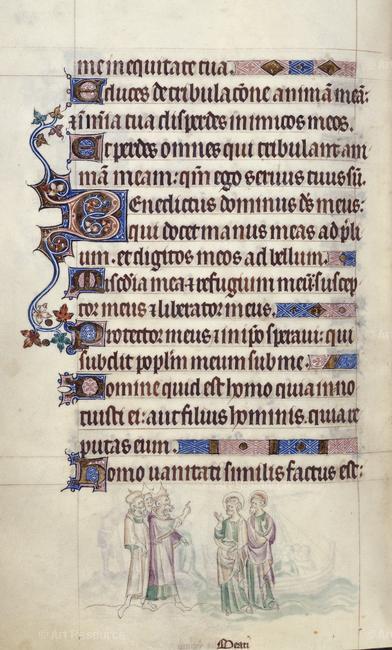 me in equitate tua.
Educes de tribulac̄one animā meā:
⁊ ī mīa tua disperdes inimicos meos.
Et perdes omnes qui tribulant am
mā meam: qm̄ ego seruus tuus sū.
Benedictus dominus ds̄ meus:
qui docet manus meas ad p̄li
um. et digitos meos ad bellum.
Misc̄dia mea ⁊ refugium meū: suscep
tor meus ⁊ liberator meus.
Protector meus ⁊ in ip̄o speraui: qui
subdit popl̄m meum sub me.
Domine quid est homo quia inno
tuisti ei: aut filius hominis. quia re
putas eum.
Homo uanitati similis factus est:
Meati
© Art Resource